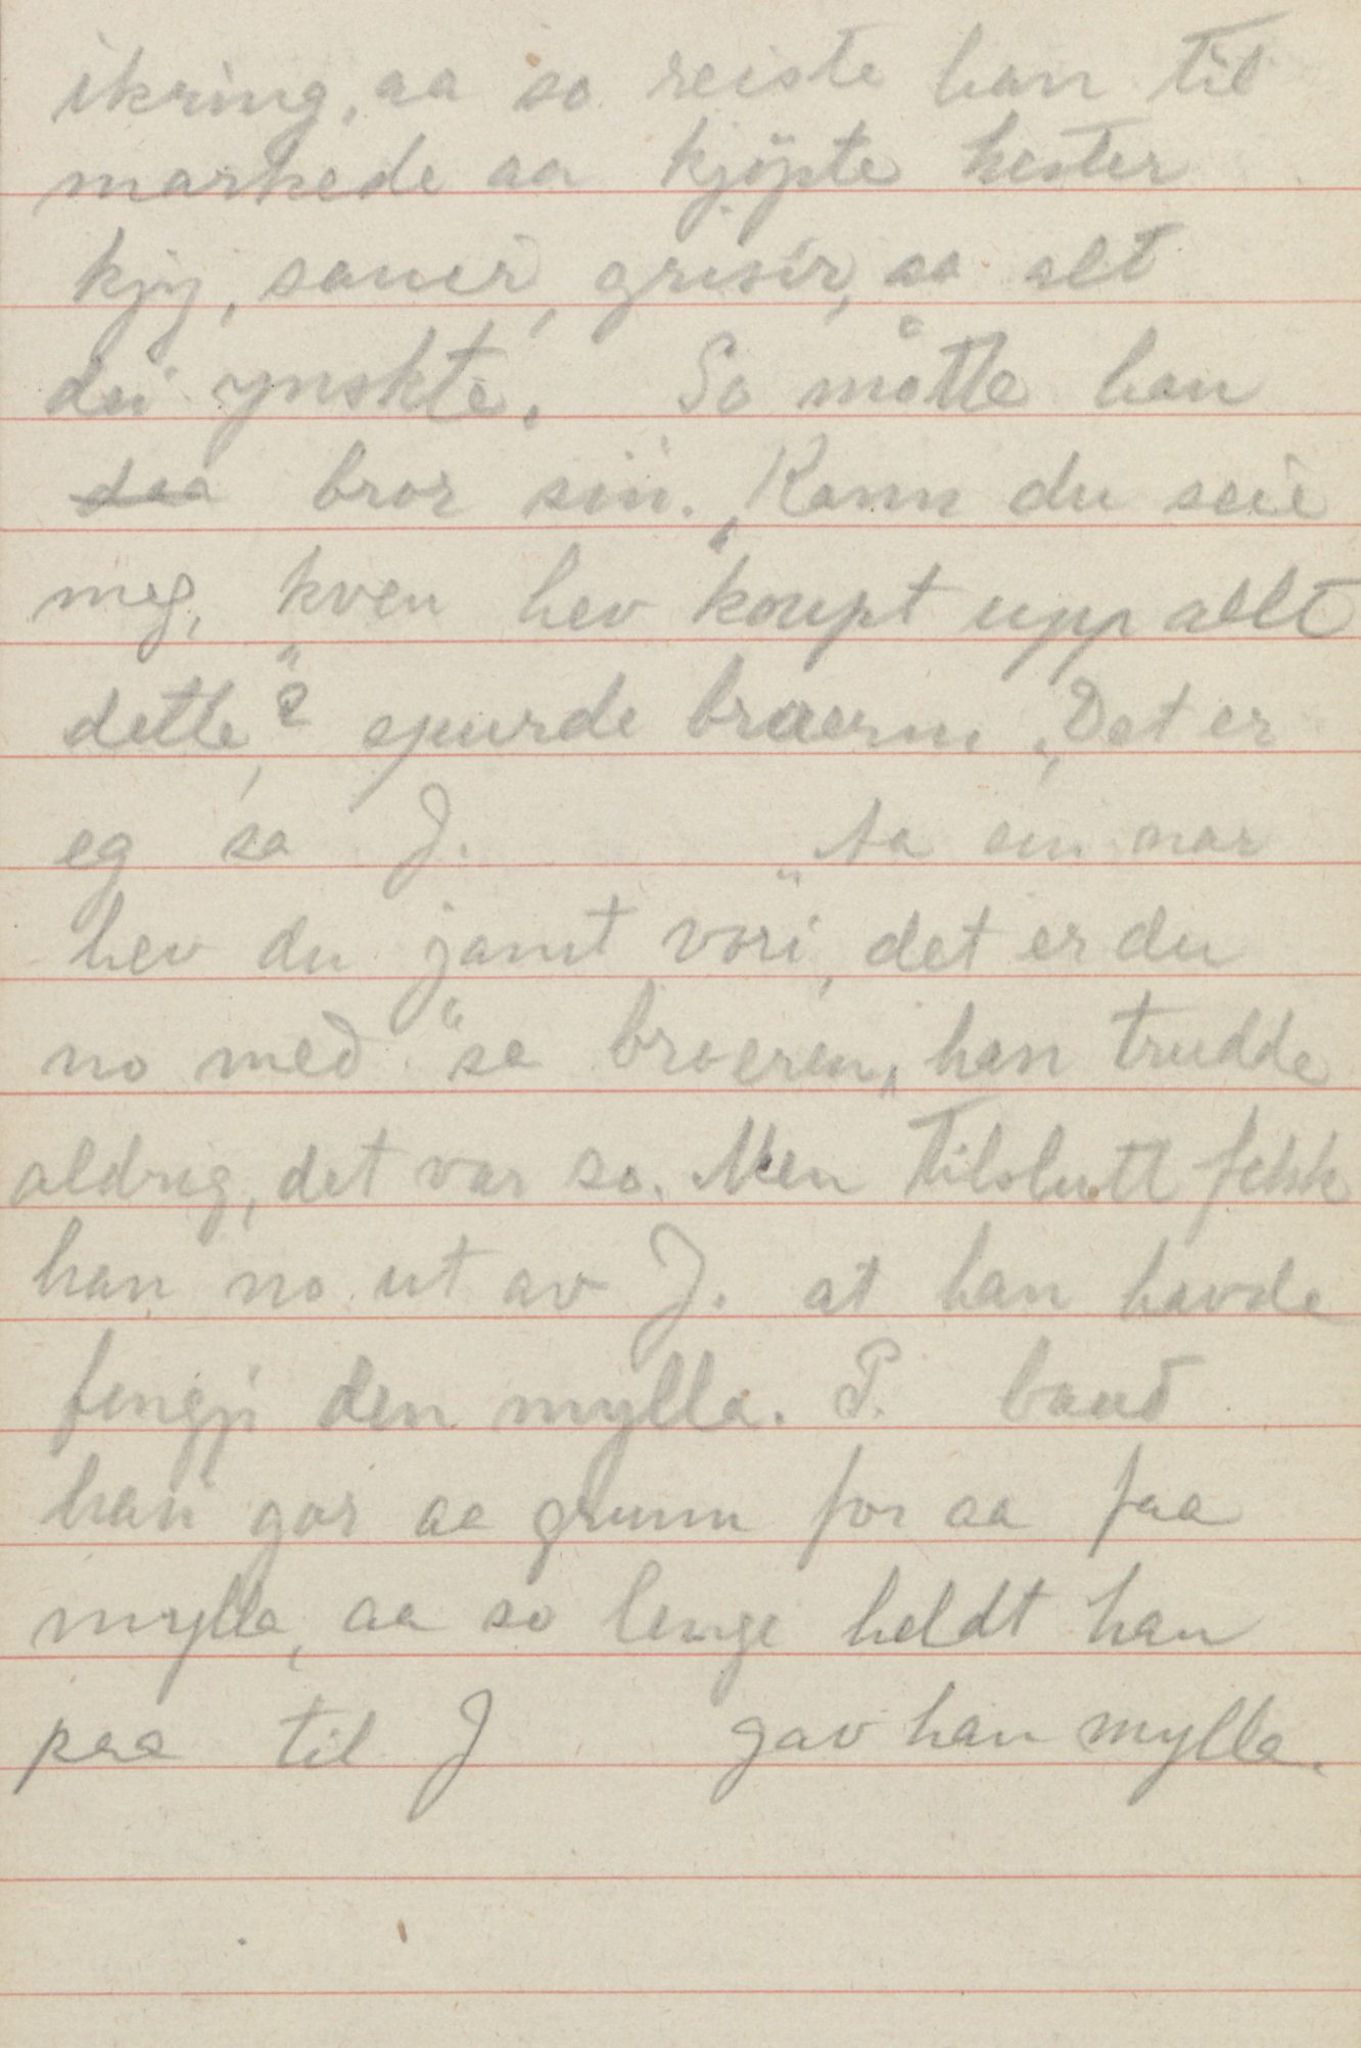 ikring, aa so reiste han til
markede aa kjöpte hester
kjyj, sauer, griser, aa alt
dei ynskte. So måtte han
daa bror sin. „Kann du seie
meg, kven hev koupt upp allt
dette“? spurde broeren. „Det er
eg sa J. „Aa ein nar
hev du jamt vori, det er du
no med“ sa broeren, han trudde
aldrig, det var so. Men tilslutt fekk
han no ut av J. at han havde
fengji den mylla. P. baud
han gar aa grunn for aa faa
mylla, aa so lenge heldt han
paa til J gav han mylla.